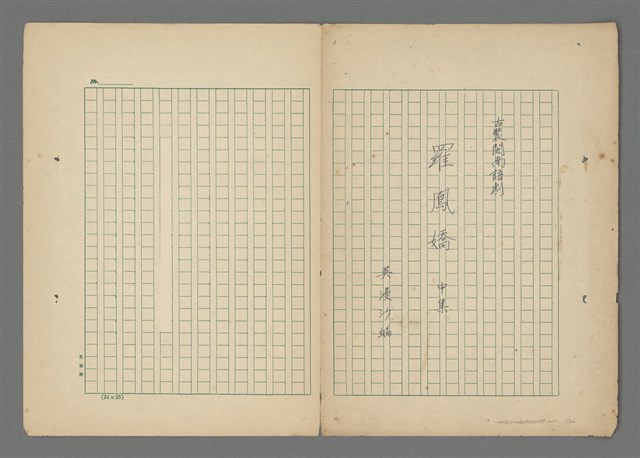 古裝閩南語劇
羅鳳嬌 中集
吳漫沙編
No.
(24×25)